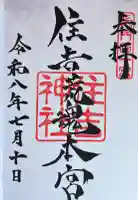 奉拝
住吉荒魂本宮
住吉神社
令和八年七月十日